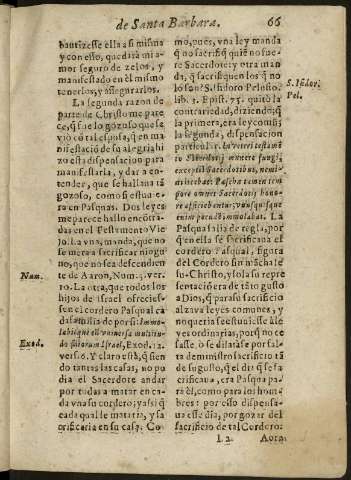 de Santa Barbara. 66
bautizesse ella a si misma
y con esso, quedarà mi a-
mor seguro de zelos, y
manifestado en el mismo
tenerlos, y assegurarlos.
La segunda razon de
parte de Christo me pare
ce, q̃ fue lo gozoso que se
viò cõ tal esposa, q̃ en ma
nifestaciõ de su alegria hi
zo esta dispensacion para
manifestarla, y dar a en-
tender, que se hallaua tã
gozoso, como si estuuie-
ra en Pasquas. Dos leyes
me parece hallo encõtra-
das en el Testamento Vie
jo. La vna, manda, que no
se meta a sacrificar ningu
no, que no sea descendien
te de Aaron, Num. 3. ver.
10. La otra, que todos los
hijos de Israel ofrecies-
sen el cordero Pasqual ca
da familia de por si: Immo-
labitque eū vniuersa multitu-
do filiorum Israel, Exod. 12.
vers. 6. Y claro està, q̃ siẽn
do tantas las casas, no pu
dia el Sacerdote andar
por todas a matar en ca-
da vna su cordero; y assi q̃
cada qual le mataria, y sa
crificaria en su casa. Co
Num.
Exod.
mo, pues, vna ley manda
q̃ no sacrifiq̃ quiẽ no fue-
re Sacerdote; y otra man
da, q̃ sacrifiquen los q̃ no
lo son? S. Isidoro Pelosio.
lib. 3. Epist. 75. quitò la
contrariedad, diziendo; q̃
la primera, era ley comū;
la segunda, dispensacion
particular. In veteri testamẽ
to Sacerdotij munere fungi,
exceptis Sacerdotibus, nemi-
ni licebat: Paschæ tamen tem
pore omnes Sacerdotij hono-
re afficiebantur; vnusquisque
enim pecudẽ immolabat. La
Pasqua salia de regla, por
q̃ en ella se sacrificaua el
cordero Pasqual, figura
del Cordero sin mãcha Ie
su-Christo, y sola su repre
sentaciõ era de tãto gusto
a Dios, q̃ para su sacrificio
alzaua leyes comunes, y
no queria se estuuiesse a le
yes ordinarias, porq̃ no ces
sasse, ò se dilatàse por fal-
ta de ministro sacrificio tã
de su gusto, q̃ el dia q̃ se sa
crificaua, era Pasqua pa-
ra èl, como para los hom-
bres: por esso dispensa-
ua esse dia, por gozar del
sacrificio de tal Cordero.
S. Isidor.
Pel.
I 2 Aora